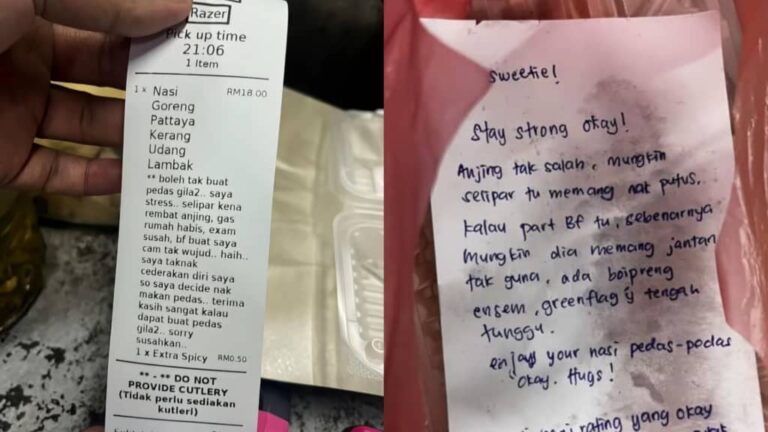 Razer
Pick up time
21:06
1 Item
1 x Nasi RM18.00
Goreng
Pattaya
Kerang
Udang
Lambak
** boleh tak buat
pedas gila2.. saya
stress.. selipar kena
rembat anjing, gas
rumah habis, exam
susah, bf buat saya
cam tak wujud.. haih..
saya taknak
cederakan diri saya
so saya decide nak
makan pedas.. terima
kasih sangat kalau
dapat buat pedas
gila2.. sorry
susahkan..
1 x Extra Spicy RM0.50
** - ** DO NOT
PROVIDE CUTLERY
(Tidak perlu sediakan
kutleri)
sweetie!
Stay strong okay!
Anjing tak salah, mungkin
selipar tu memang nak putus.
kalau part BF tu, sebenarnya
mungkin dia memang jantan
tak guna, ada boipreng
ensem, greenflag yg tengah
tunggu.
enjayy your nasi pedas-pedas
okay. Hugs!
rating yang okay